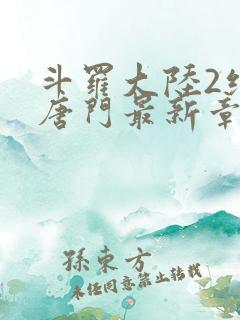 斗羅大陸2絕
唐門最新章
孫東方
未经同意禁止转载